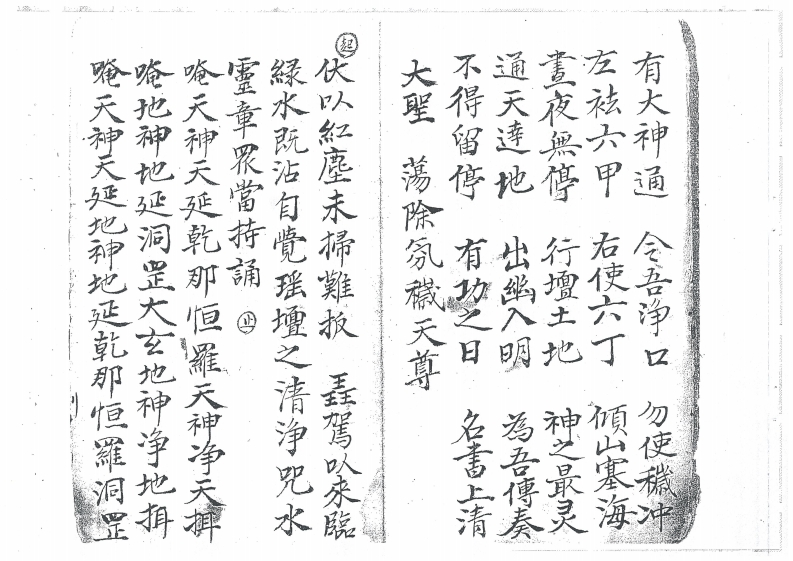 有大神通 令吾淨口 勿使穢冲
左袪六甲 右使六丁 傾山塞海
晝夜無停 行壇土地 神之最灵
通天達地 出幽入明 為吾傳奏
不得留停 有功之日 名書上清
大聖 蕩除氛穢天尊
起
伏以紅塵未掃難扳 駕以來臨
綠水既沾自覺瑶壇之清淨咒水
靈章眾當持誦 止
唵天神天延乾那恒羅天神净天揖
唵地神地延洞罡大玄地神净地揖
唵天神天延地神地延乾那恒羅洞罡